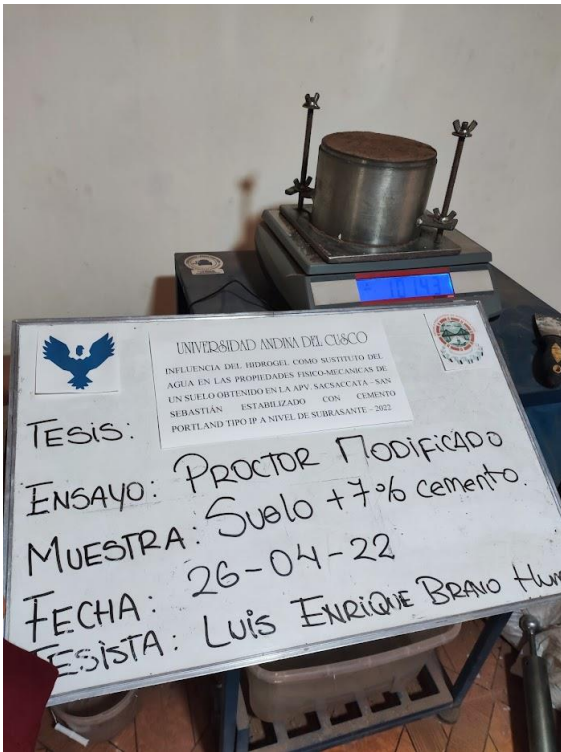 UNIVERSIDAD ANDINA DEL CUSCO
INFLUENCIA DEL HIDROGEL COMO SUSTITUTO DEL
AGUA EN LAS PROPIEDADES FISICO-MECANICAS DE
UN SUELO OBTENIDO EN LA APV. SACSACCATA – SAN
SEBASTIÁN ESTABILIZADO CON CEMENTO
PORTLAND TIPO IP A NIVEL DE SUBRASANTE – 2022
TESIS:
ENSAYO: PROCTOR MODIFICADO
MUESTRA: Suelo +7% cemento.
FECHA: 26-04-22
TESISTA: LUIS ENRIQUE BRAVO Hum